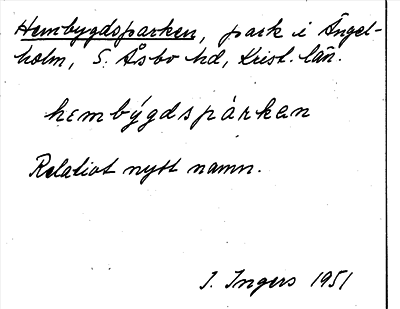 Hembygdsparken, park i Ängel-
holm, S. Åsbo hd, Krist. län.
hembýgdspàrken
Relativt nytt namn.
I. Ingers 1951